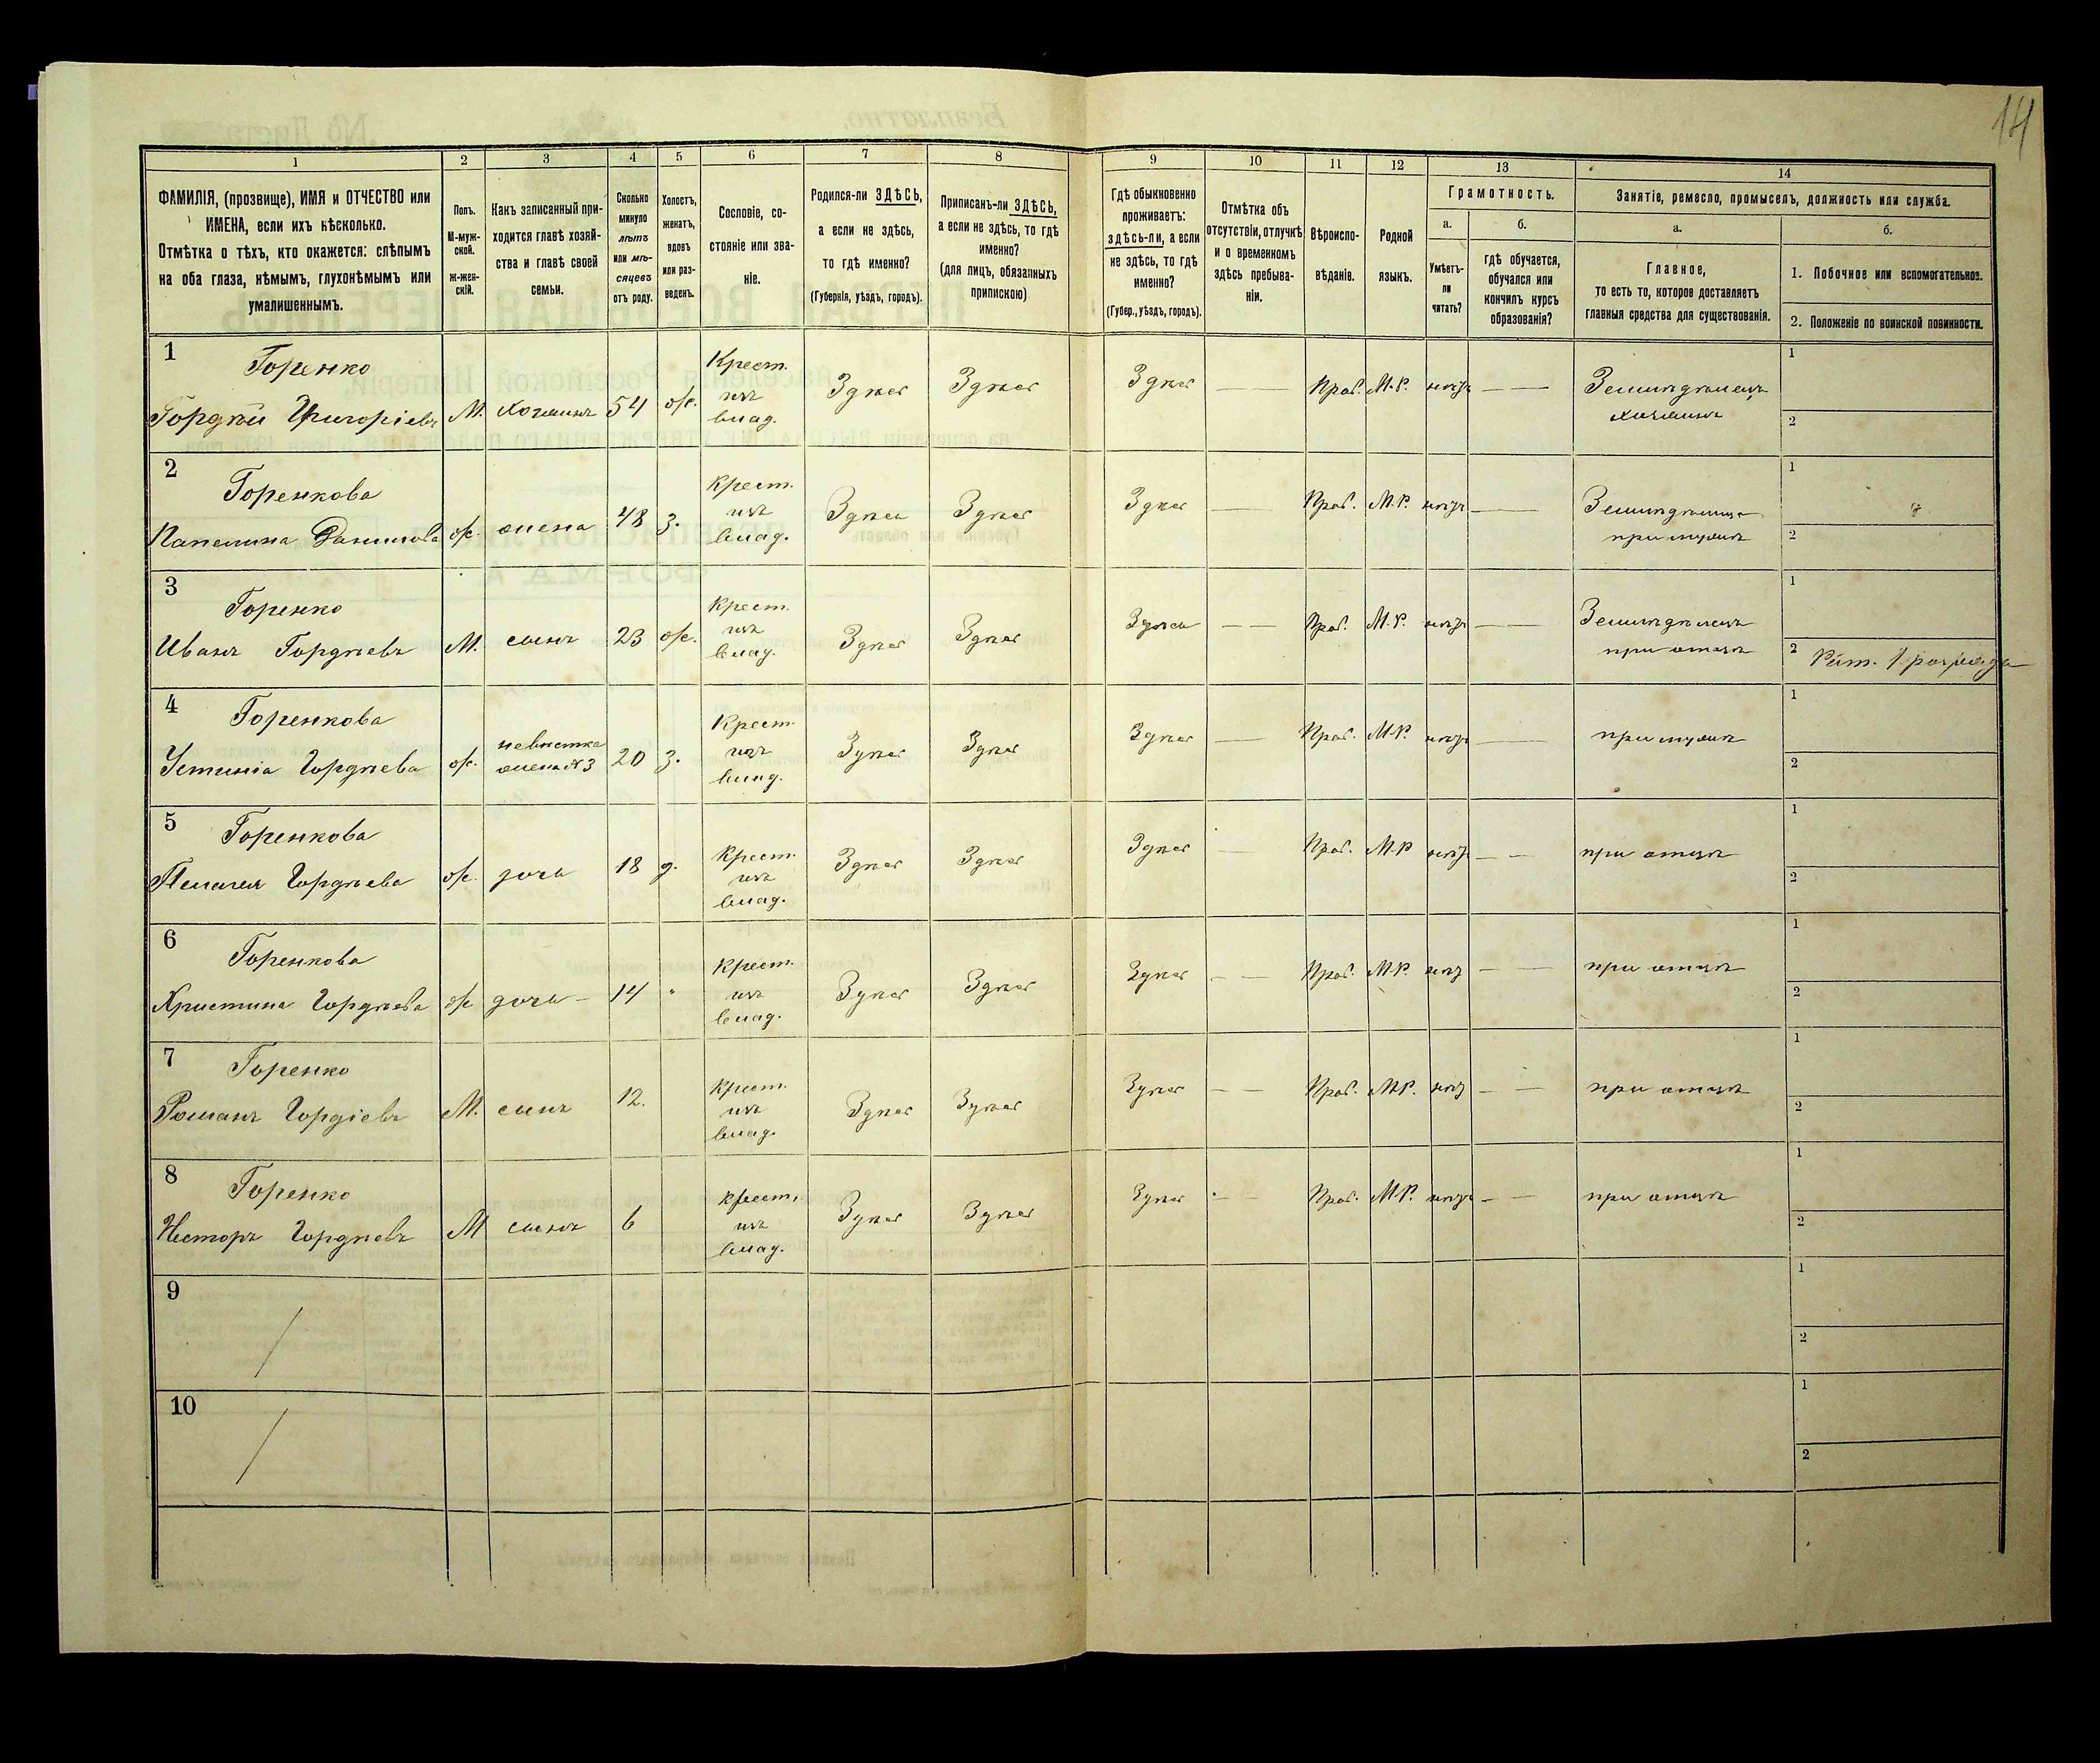 14
1 2 3 4 5 6 7 8 9 10 11 12 13 14
ФАМИЛІЯ, (прозвище), ИМЯ и ОТЧЕСТВО или
ИМЕНА, если ихъ нѣсколько.
Отмѣтка о тѣхъ, кто окажется: слѣпымъ
на оба глаза, нѣмымъ, глухонѣмымъ или
умалишеннымъ.
Полъ.
М-муж-
ской.
ж-жен-
скій.
Какъ записанный при-
ходится главѣ хозяй-
ства и главѣ своей
семьи.
Сколько
минуло
лѣтъ
или мѣ-
сяцевъ
отъ роду.
Холостъ,
женатъ,
вдовъ
или раз-
веденъ.
Сословіе, со-
стояніе или зва-
ніе.
Родился-ли ЗДѢСЬ,
а если не здѣсь,
то гдѣ именно?
(Губернія, уѣздъ, городъ).
Приписанъ-ли ЗДѢСЬ,
а если не здѣсь, то гдѣ
именно?
(для лицъ, обязанныхъ
припискою)
Гдѣ обыкновенно
проживаетъ:
здѣсь-ли, а если
не здѣсь, то гдѣ
именно?
(Губер., уѣздъ, городъ).
Отмѣтка объ
отсутствіи, отлучкѣ
и о временномъ
здѣсь пребыва-
ніи.
Вѣроиспо-
вѣданіе.
Родной
языкъ.
Грамотность.
а.
Умѣетъ-
ли
читать?
б.
гдѣ обучается,
обучался или
кончилъ курсъ
образованія?
Занятіе, ремесло, промыселъ, должность или служба.
а.
Главное,
то есть то, которое доставляетъ
главныя средства для существованія.
б.
1. Побочное или вспомогательное.
2. Положеніе по воинской повинности.
1
Горенко
Гордѣй Григоріевъ М. хозяинъ 54 ж.
Крест.
изъ
влад.
Здѣсь Здѣсь Здѣсь — Прав. М.Р. нѣтъ —
Земледѣлецъ
хозяинъ
1
2
2
Горенкова
Данилова ж. жена 48 з.
Крест.
изъ
влад.
Здѣсь Здѣсь Здѣсь — Прав. М.Р. нѣтъ —
при мужѣ
1
2
3
Горенко
Иванъ Гордѣевъ М. сынъ 23 ж.
Крест.
изъ
влад.
Здѣсь Здѣсь Здѣсь — Прав. М.Р. нѣтъ —
Земледѣлецъ
при отцѣ
1
2 Рат. 1 разряда
4
Горенкова
Устинія Гордѣева ж.
невѣстка
жена №3
20 з.
Крест.
изъ
влад.
Здѣсь Здѣсь Здѣсь — Прав. М.Р. нѣтъ — при мужѣ
1
2
5
Горенкова
Пелагея Гордѣева ж. дочь 18 д.
Крест.
изъ
влад.
Здѣсь Здѣсь Здѣсь — Прав. М.Р нѣтъ — при отцѣ
1
2
6
Горенкова
Христина Гордѣева ж дочь — 14 "
Крест.
изъ
влад.
Здѣсь Здѣсь Здѣсь — Прав. М.Р. нѣтъ — при отцѣ
1
2
7
Горенко
Романъ Гордіевъ М. сынъ 12.
Крест.
изъ
влад.
Здѣсь Здѣсь Здѣсь — Прав. М.Р. нѣтъ — при отцѣ
1
2
8
Горенко
Несторъ Гордѣевъ М сынъ 6
Крест.
изъ
влад.
Здѣсь Здѣсь Здѣсь — Прав. М.Р. нѣтъ — при отцѣ
1
2
9
1
2
10
1
2